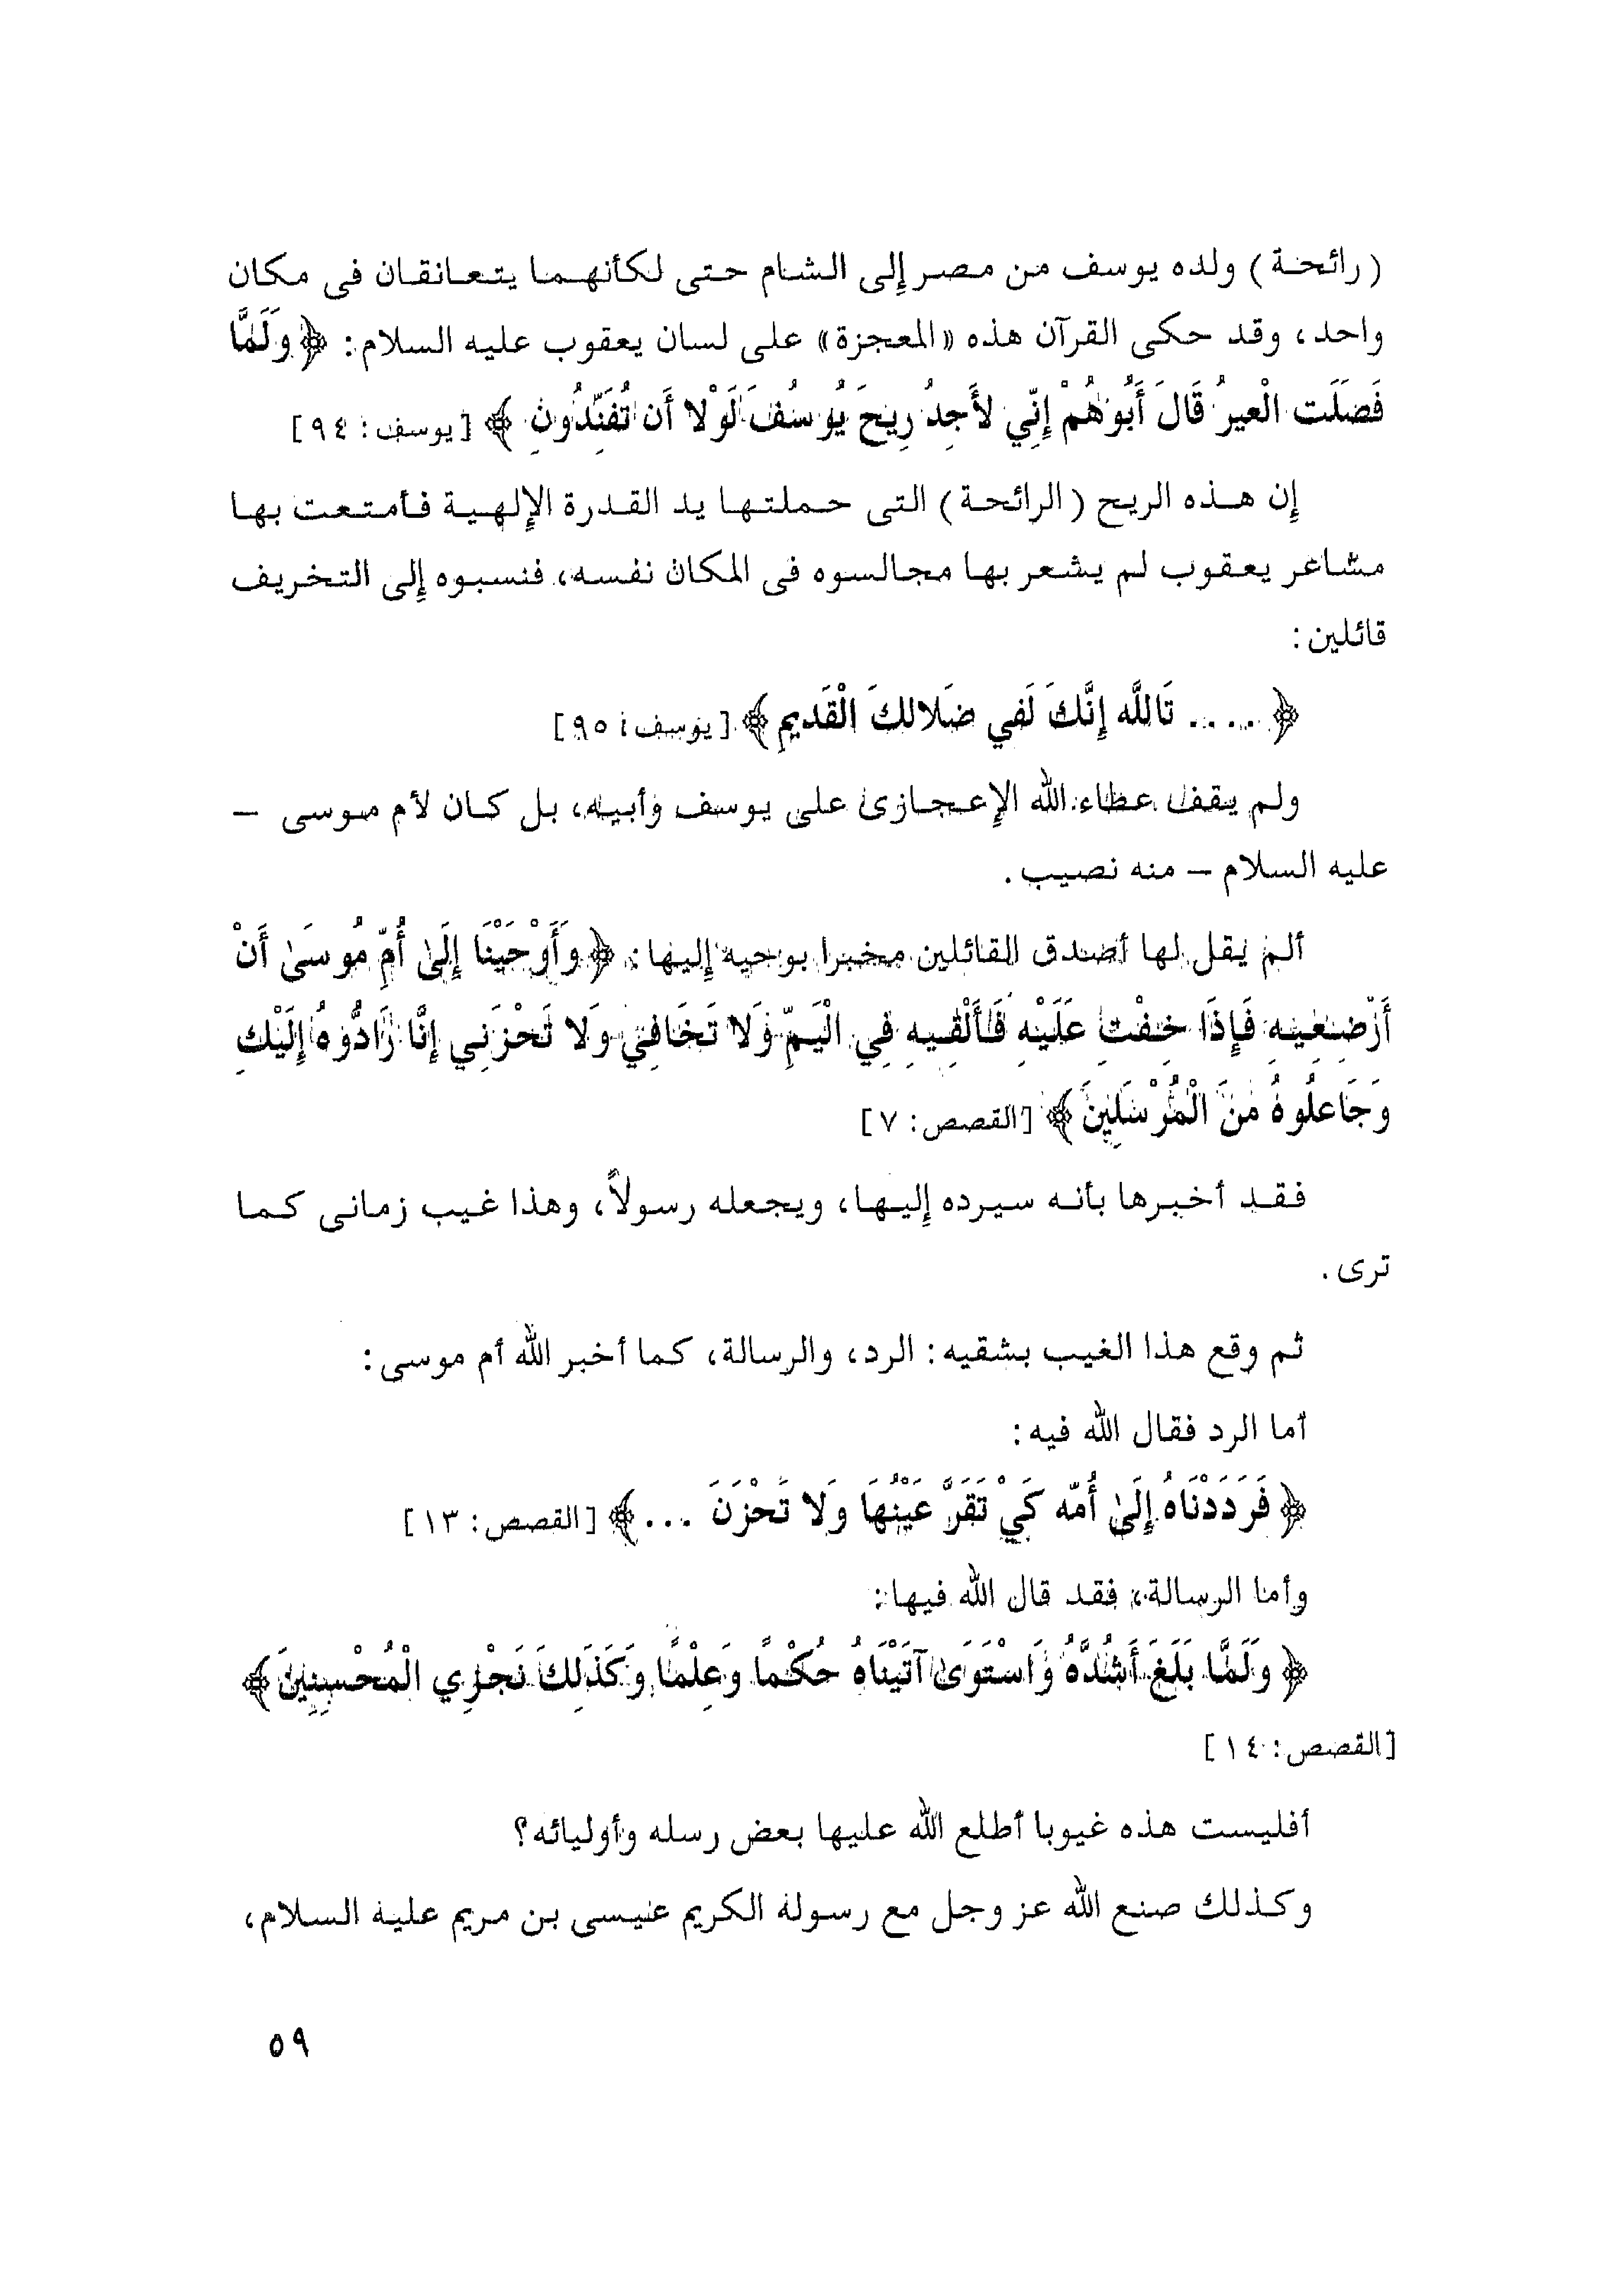 ( رائحة ) ولده يوسف من مصر إلى الشام حتى لكأنهما يتعانقان فى مكان
واحد، وقد حكى القرآن هذه «المعجزة» على لسان يعقوب عليه السلام: ﴿ وَلَمَّا
فَصَلَت الْعيرُ قَالَ أَبُوهُمْ إِنِّي لأَجِدُ رِيحَ يُوسُفَ لَوْلا أَن تُفَنِّدُونِ ﴾ [يوسف: ٩٤]
إن هذه الريح ( الرائحة ) التى حملتها يد القدرة الإلهية فأمتعت بها
مشاعر يعقوب لم يشعر بها مجالسوه فى المكان نفسه، فنسبوه إلى التخريف
قائلين:
﴿ .... تَاللَّه إِنَّكَ لَفي ضَلالكَ الْقَديمِ ﴾ [يوسف: ٩٥]
ولم يقف عطاء الله الإعجازى على يوسف وأبيه، بل كان لأم موسى –
عليه السلام – منه نصيب.
ألم يقل لها أصدق القائلين مخبرا بوحيه إليها: ﴿ وَأَوْحَيْنَا إِلَىٰ أُمِّ مُوسَىٰ أَنْ
أَرْضِعِيهِ فَإِذَا خِفْتِ عَلَيْهِ فَأَلْقِيهِ فِي الْيَمِّ وَلا تَخَافِي وَلا تَحْزَنِي إِنَّا رَادُّوهُ إِلَيْكِ
وَجَاعلُوهُ منَ الْمُرْسَلِينَ ﴾ [القصص: ٧]
فقد أخبرها بأنه سيرده إليها، ويجعله رسولاً، وهذا غيب زمانى كما
ترى.
ثم وقع هذا الغيب بشقيه: الرد، والرسالة، كما أخبر الله أم موسى:
أما الرد فقال الله فيه:
﴿ فَرَدَدْنَاهُ إِلَىٰ أُمّه كَيْ تَقَرَّ عَيْنُهَا وَلا تَحْزَنَ ... ﴾ [القصص: ١٣]
وأما الرسالة، فقد قال الله فيها:
﴿ وَلَمَّا بَلَغَ أَشُدَّهُ وَاسْتَوَىٰ آتَيْنَاهُ حُكْمًا وَعِلْمًا وَكَذَلِكَ نَجْزِي الْمُحْسِنِينَ ﴾
[القصص: ١٤]
أفليست هذه غيوبا أطلع الله عليها بعض رسله وأوليائه؟
وكذلك صنع الله عز وجل مع رسوله الكريم عيسى بن مريم عليه السلام،
٥٩